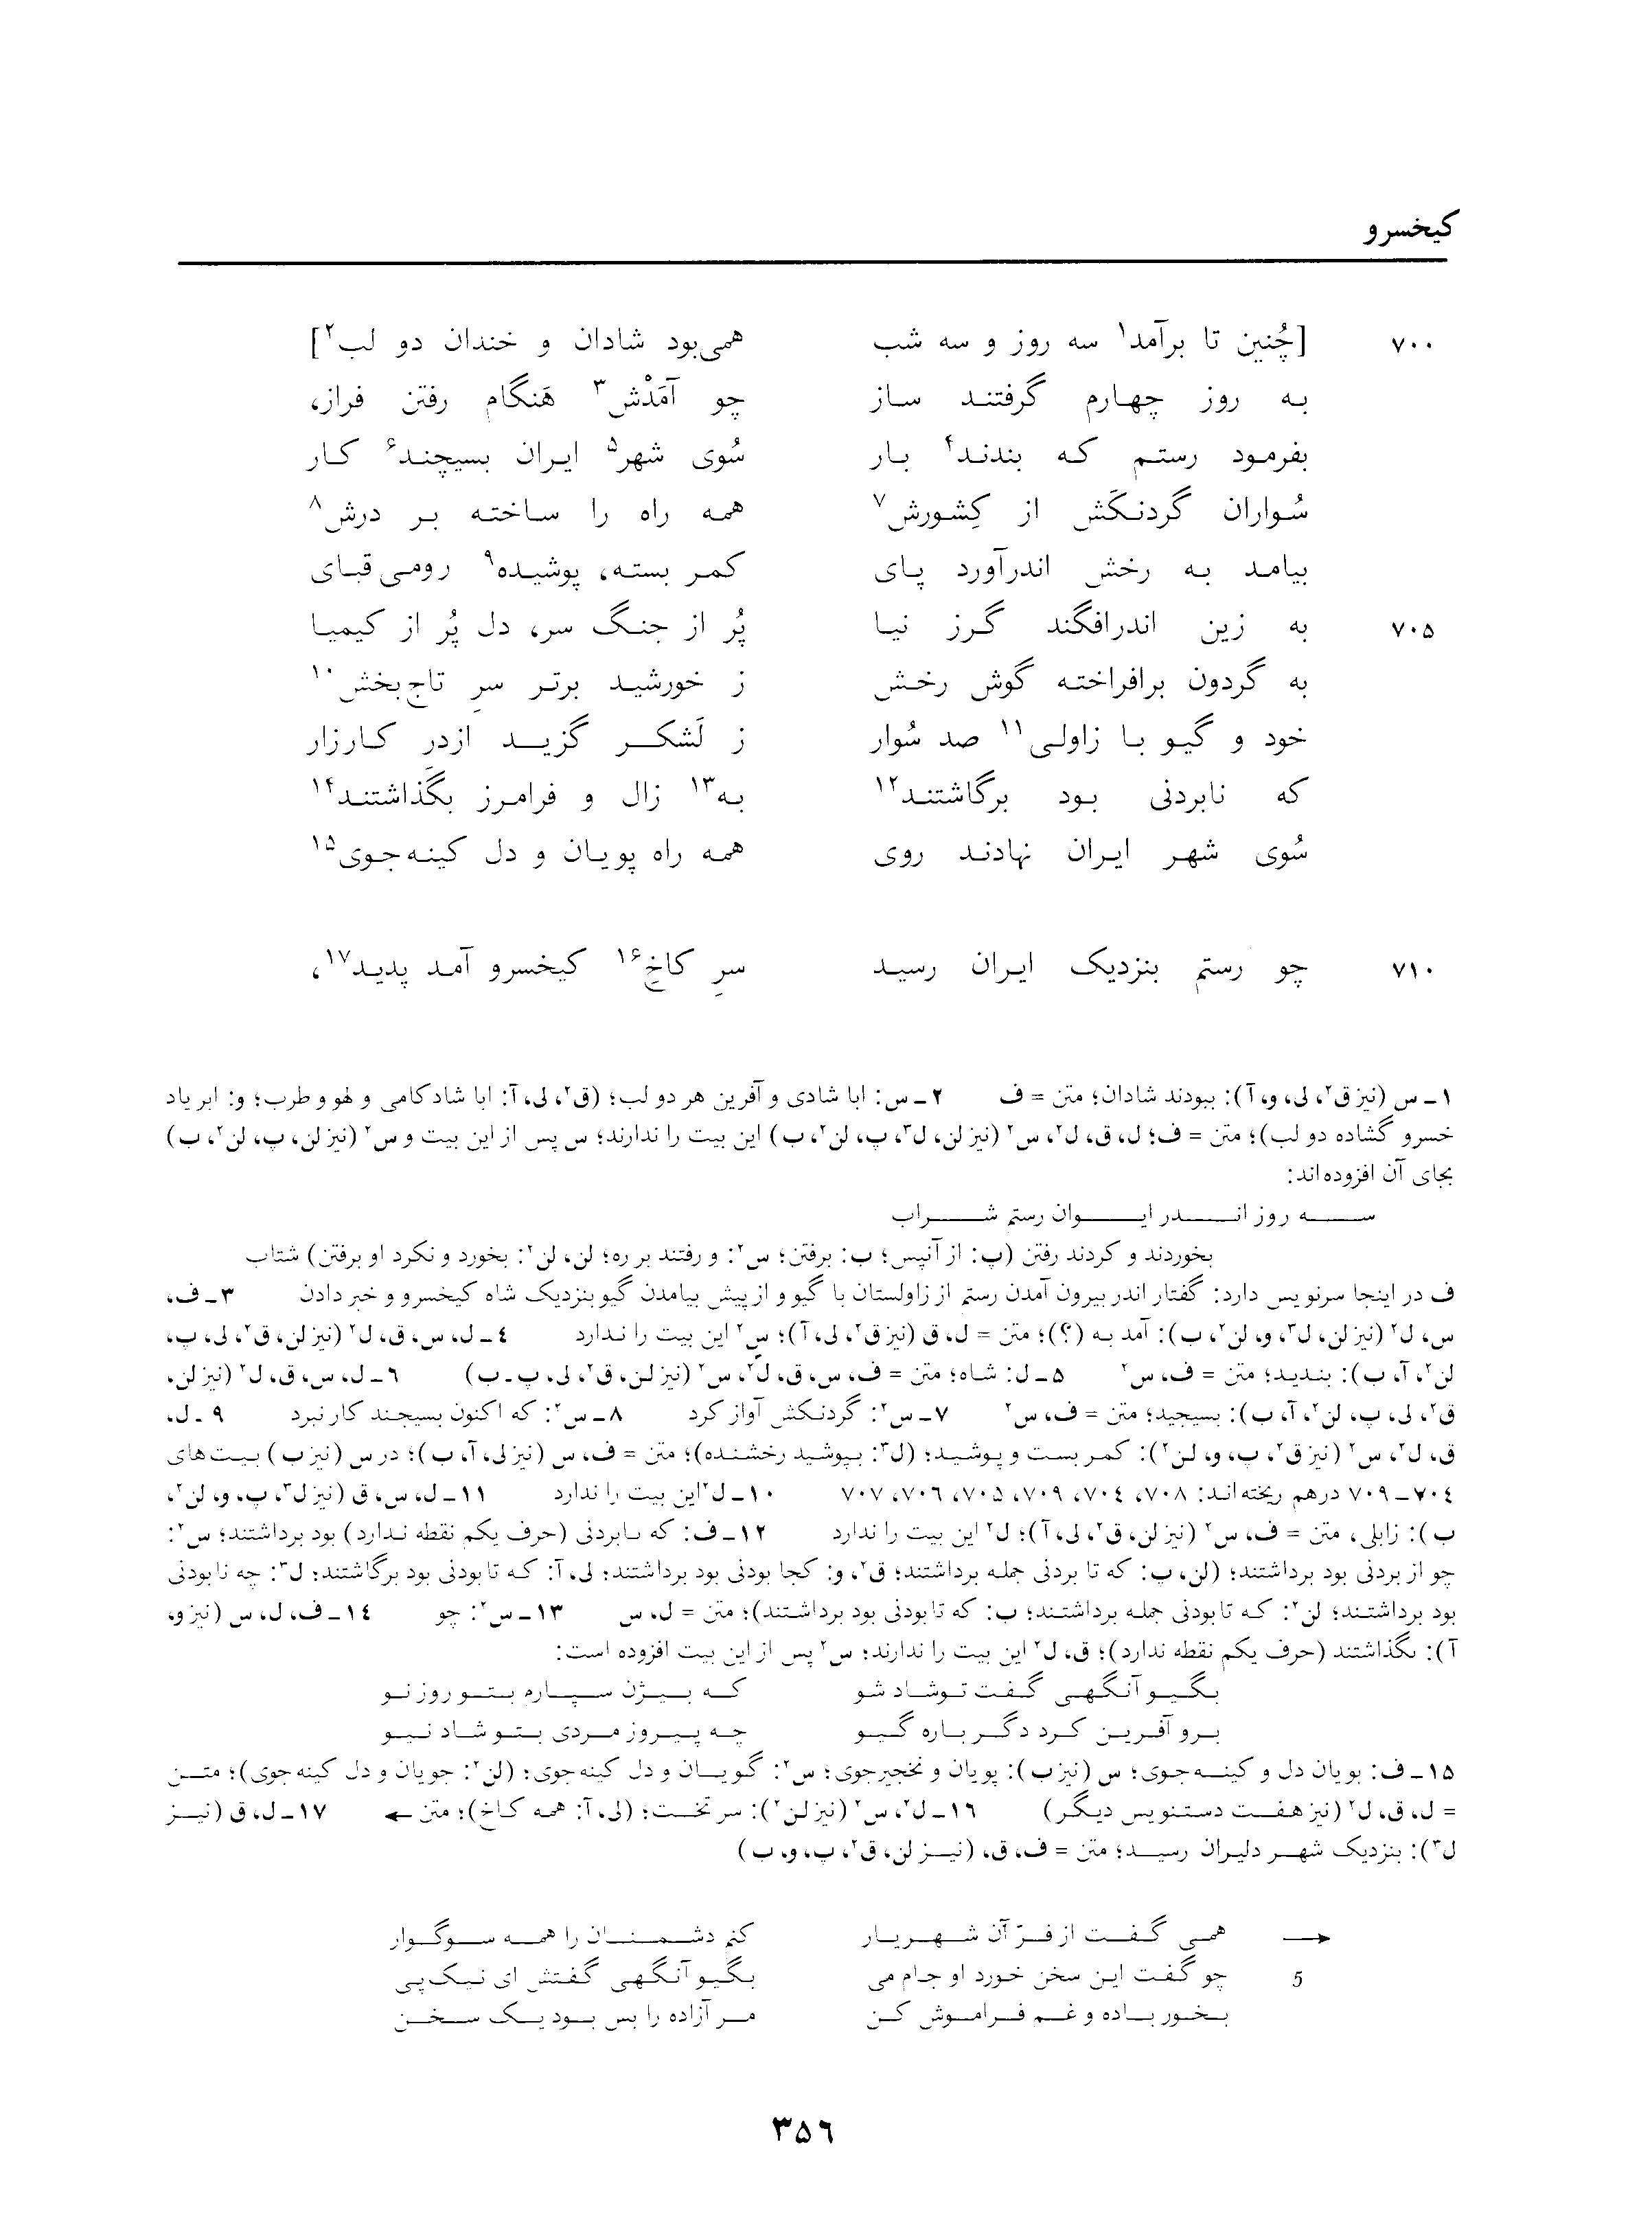 کیخسرو
۷۰۰ [چُنین تا برآمد۱ سه روز و سه شب همی‌بود شادان و خندان دو لب۲]
به روز چهارم گرفتند ساز چو آمَدْش۳ هَنگام رفتن فراز،
بفرمود رستم که بندند۴ بار سُوی شهر۵ ایران بسیچند۶ کار
سُواران گردنکَش از کِشورش۷ همه راه را ساخته بر درش۸
بیامد به رخش اندرآورد پای کمر بسته، پوشیده۹ رومی‌قبای
۷۰۵ به زین اندرافگند گرز نیا پُر از جنگ سر، دل پُر از کیمیا
به گردون برافراخته گوش رخش ز خورشید برتر سرِ تاج‌بخش۱۰
خود و گیو با زاولی۱۱ صد سُوار ز لَشکر گزید ازدر کارزار
که نابردنی بود برگاشتند۱۲ به۱۳ زال و فرامرز بگَذاشتند۱۴
سُوی شهر ایران نهادند روی همه راه پویان و دل کینه‌جوی۱۵
۷۱۰ چو رستم بنزدیک ایران رسید سرِ کاخِ۱۶ کیخسرو آمد پدید۱۷،
۱ـ س (نیز ق۲، لی، و، آ): ببودند شادان؛ متن = ف ۲ـ س: ابا شادی و آفرین هر دو لب؛ (ق۲، لی، آ: ابا شادکامی و لهو و طرب؛ و: ابر یاد
خسرو گشاده دو لب)؛ متن = ف؛ ل، ق، ل۲، س۲ (نیز لن، ل۳، پ، لن۲، ب) این بیت را ندارند؛ س پس از این بیت و س۲ (نیز لن، پ، لن۲، ب)
بجای آن افزوده‌اند:
سه روز اندر ایوان رستم شراب
بخوردند و کردند رفتن (پ: از آنپس؛ ب: برفتن؛ س۲: و رفتند بر ره؛ لن، لن۲: بخورد و نکرد او برفتن) شتاب
ف در اینجا سرنویس دارد: گفتار اندر بیرون آمدن رستم از زاولستان با گیو و از پیش بیامدن گیو بنزدیک شاه کیخسرو و خبر دادن ۳ـ ف،
س، ل۲ (نیز لن، ل۳، و، لن۲، ب): آمد به (؟)؛ متن = ل، ق (نیز ق۲، لی، آ)؛ س۲ این بیت را ندارد ٤ـ ل، س، ق، ل۲ (نیز لن، ق۲، لی، پ،
لن۲، آ، ب): بندید؛ متن = ف، س۲ ۵ـ ل: شاه؛ متن = ف، س، ق، ل۲، س۲ (نیز لن، ق۲، لی، پ ـ ب) ٦ـ ل، س، ق، ل۲ (نیز لن،
ق۲، لی، پ، لن۲، آ، ب): بسیجید؛ متن = ف، س۲ ۷ـ س۲: گردنکش آواز کرد ۸ـ س۲: که اکنون بسیجند کار نبرد ۹ ـ ل،
ق، ل۲، س۲ (نیز ق۲، پ، و، لن۲): کمر بست و پوشید؛ (ل۳: بپوشید رخشنده)؛ متن = ف، س (نیز لی، آ، ب)؛ در س (نیز ب) بیت‌های
۷۰٤ـ۷۰۹ درهم ریخته‌اند: ۷۰۸، ۷۰٤، ۷۰۹، ۷۰۵، ۷۰٦، ۷۰۷ ۱۰ـ ل۲ این بیت را ندارد ۱۱ـ ل، س، ق (نیز ل۳، پ، و، لن۲،
ب): زابلی، متن = ف، س۲ (نیز لن، ق۲، لی، آ)؛ ل۲ این بیت را ندارد ۱۲ـ ف: که ٮابردنی (حرف یکم نقطه ندارد) بود برداشتند؛ س۲:
چو از بردنی بود برداشتند؛ (لن، پ: که تا بردنی جمله برداشتند؛ ق۲، و: کجا بودنی بود برداشتند؛ لی، آ: که تا بودنی بود برگاشتند؛ ل۳: چه نابودنی
بود برداشتند؛ لن۲: که تا بودنی جمله برداشتند؛ ب: که تا بودنی بود برداشتند)؛ متن = ل، س ۱۳ـ س۲: چو ۱٤ـ ف، ل، س (نیز و،
آ): ٮگذاشتند (حرف یکم نقطه ندارد)؛ ق، ل۲ این بیت را ندارند؛ س۲ پس از این بیت افزوده است:
بگیو آنگهی گفت تو شاد شو که بیژن سپارم بتو روز نو
برو آفرین کرد دگر باره گیو چه پیروز مردی بتو شاد نیو
۱۵ـ ف: بویان دل و کینه‌جوی؛ س (نیز ب): پویان و نخجیرجوی؛ س۲: گویان و دل کینه‌جوی؛ (لن۲: جویان و دل کینه‌جوی)؛ متن
= ل، ق، ل۲ (نیز هفت دستنویس دیگر) ۱٦ـ ل۲، س۲ (نیز لن۲): سر تخت؛ (لی، آ: همه کاخ)؛ متن ← ۱۷ـ ل، ق (نیز
ل۳): بنزدیک شهر دلیران رسید؛ متن = ف، ق، (نیز لن، ق۲، پ، و، ب)
→ همی گفت از فرّ آن شهریار کنم دشمنان را همه سوگوار
5 چو گفت این سخن خورد او جام می بگیو آنگهی گفتش ای نیک‌پی
بخور باده و غم فراموش کن مر آزاده را بس بود یک سخن
۳۵٦